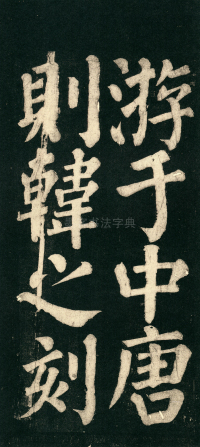 游于中唐
則韓之刻
书法字典